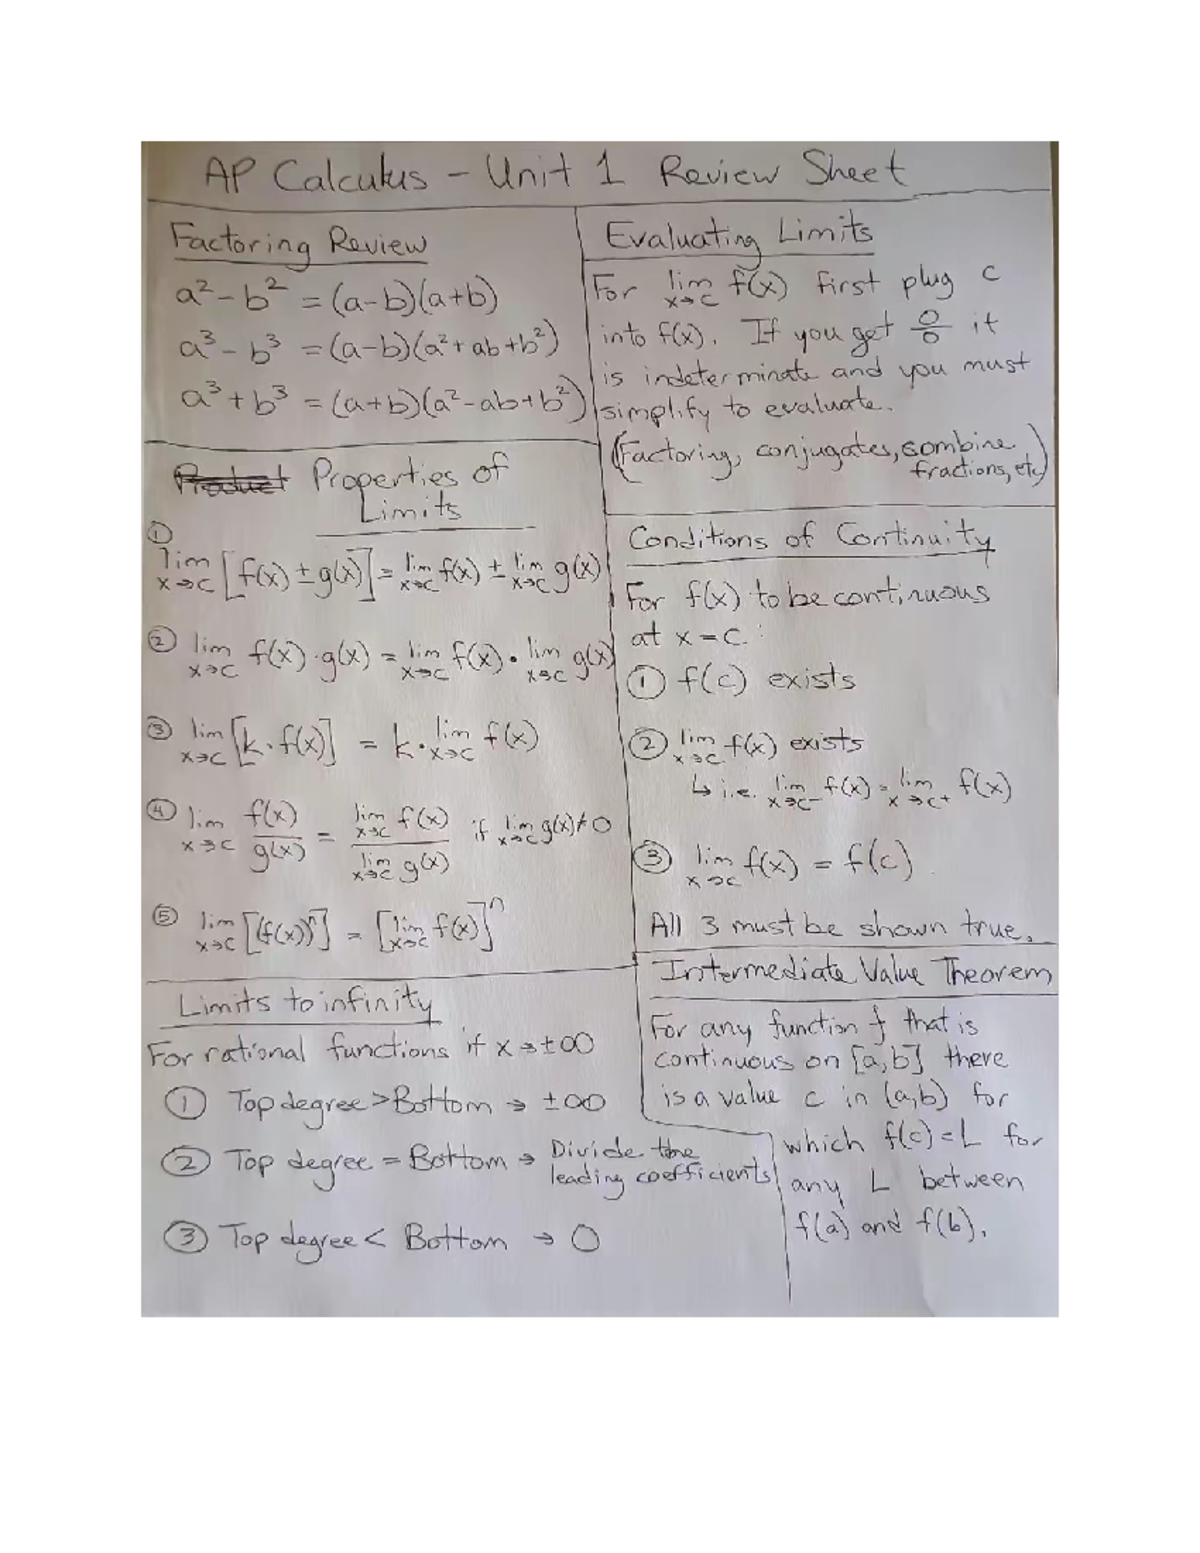 AP Calculus - Unit 1 Review Sheet
Factoring Review
a² - b² = (a-b)(a+b)
a³ - b³ = (a-b)(a²+ab+b²)
a³ + b³ = (a+b)(a²-ab+b²)
Product Properties of
Limits
① lim x→c [f(x) ± g(x)] = lim x→c f(x) ± lim x→c g(x)
② lim x→c f(x)·g(x) = lim x→c f(x) • lim x→c g(x)
③ lim x→c [k·f(x)] = k·lim x→c f(x)
④ lim x→c f(x)/g(x) = lim x→c f(x) / lim x→c g(x) if lim x→c g(x)≠0
⑤ lim x→c [(f(x))ⁿ] = [lim x→c f(x)]ⁿ
Limits to infinity
For rational functions if x→±∞
① Top degree > Bottom → ±∞
② Top degree = Bottom → Divide the
leading coefficients
③ Top degree < Bottom → 0
Evaluating Limits
For lim x→c f(x) first plug c
into f(x). If you get 0/0 it
is indeterminate and you must
simplify to evaluate.
(Factoring, conjugates, combine
fractions, etc)
Conditions of Continuity
For f(x) to be continuous
at x = c :
① f(c) exists
② lim x→c f(x) exists
↳ i.e. lim x→c- f(x) = lim x→c+ f(x)
③ lim x→c f(x) = f(c)
All 3 must be shown true.
Intermediate Value Theorem
For any function f that is
continuous on [a,b] there
is a value c in (a,b) for
which f(c)=L for
any L between
f(a) and f(b).